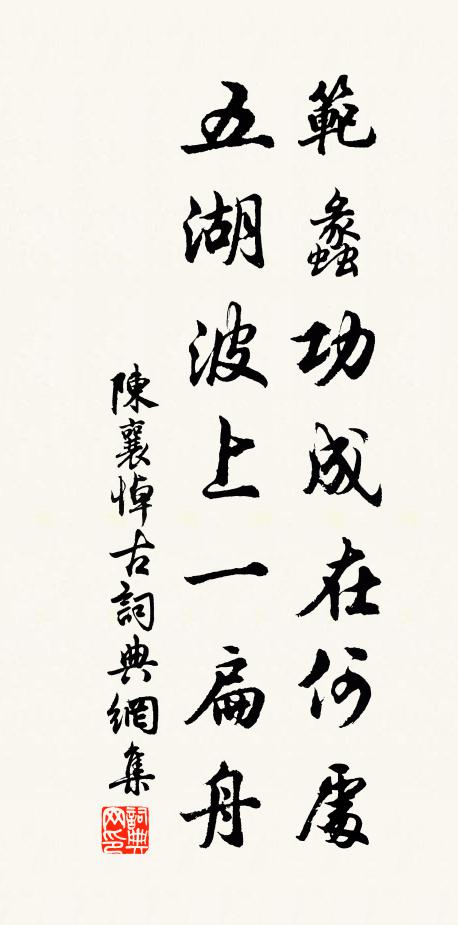 範蠡功成在何處
五湖波上一扁舟
陳襄悼古詞典網集
詞典網印